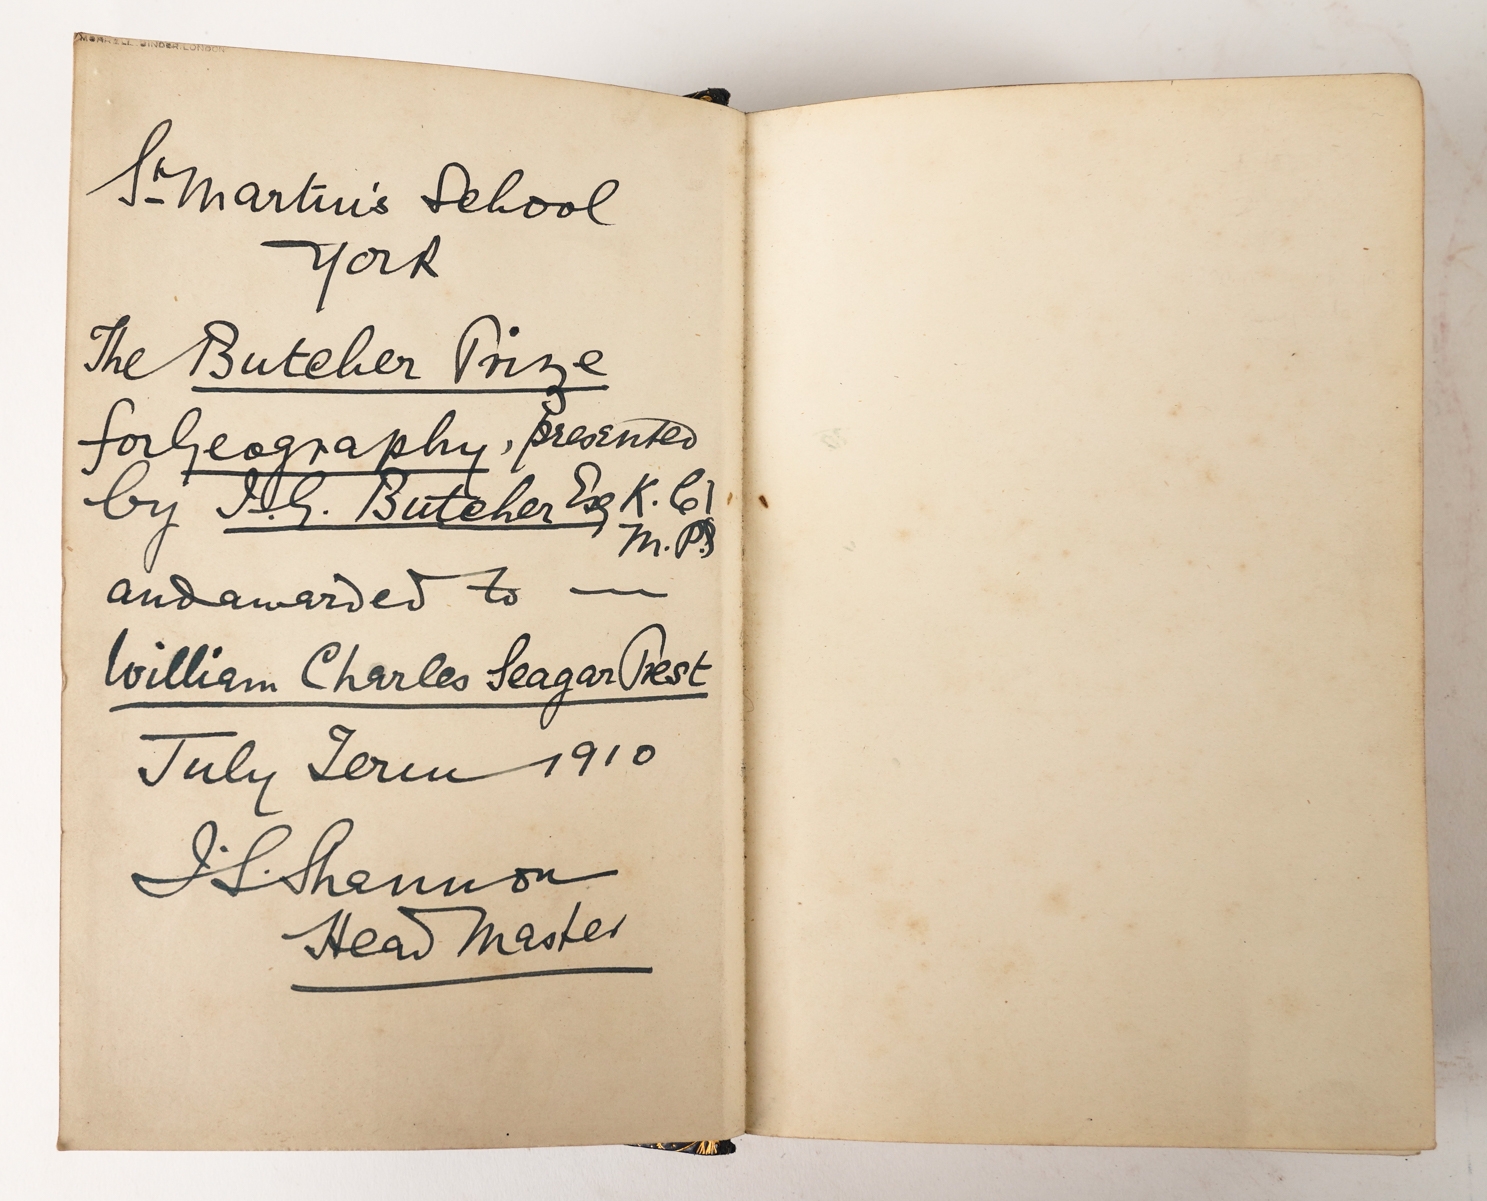 MORRELL BINDER LONDON
St. Martin's School
York
The Butcher Prize
for Geography, presented
by J.G. Butcher Esq K.C.
M.P.
and awarded to —
William Charles Seagar Prest
July Term 1910
J.S. Shannon
Head Master